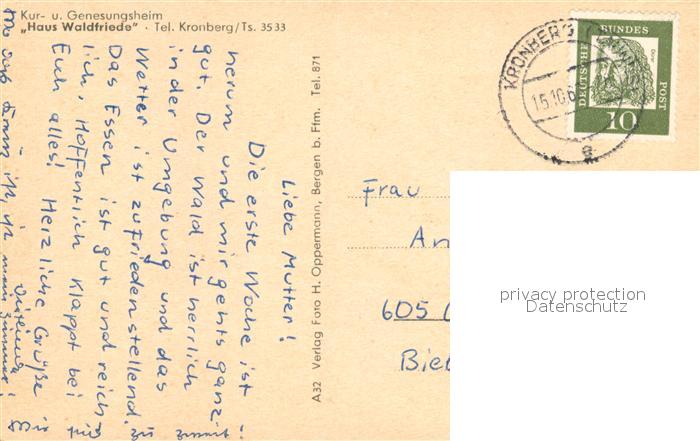 Kur- u. Genesungsheim
„Haus Waldfriede" · Tel. Kronberg/Ts. 3533
Liebe Mutter!
Die erste Woche ist
herum und mir gehts ganz
gut. Der Wald ist herrlich
in der Umgebung und das
Wetter ist zufriedenstellend.
Das Essen ist gut und reich
lich, Hoffentlich klappt bei
Euch alles! Herzliche Grüße
A32 Verlag Foto H. Oppermann, Bergen b. Ffm. Tel. 871
KRONBERG
15.10.6
a
DEUTSCHE BUNDES POST
Dürer
10
Frau
An
605
Bie
privacy protection
Datenschutz